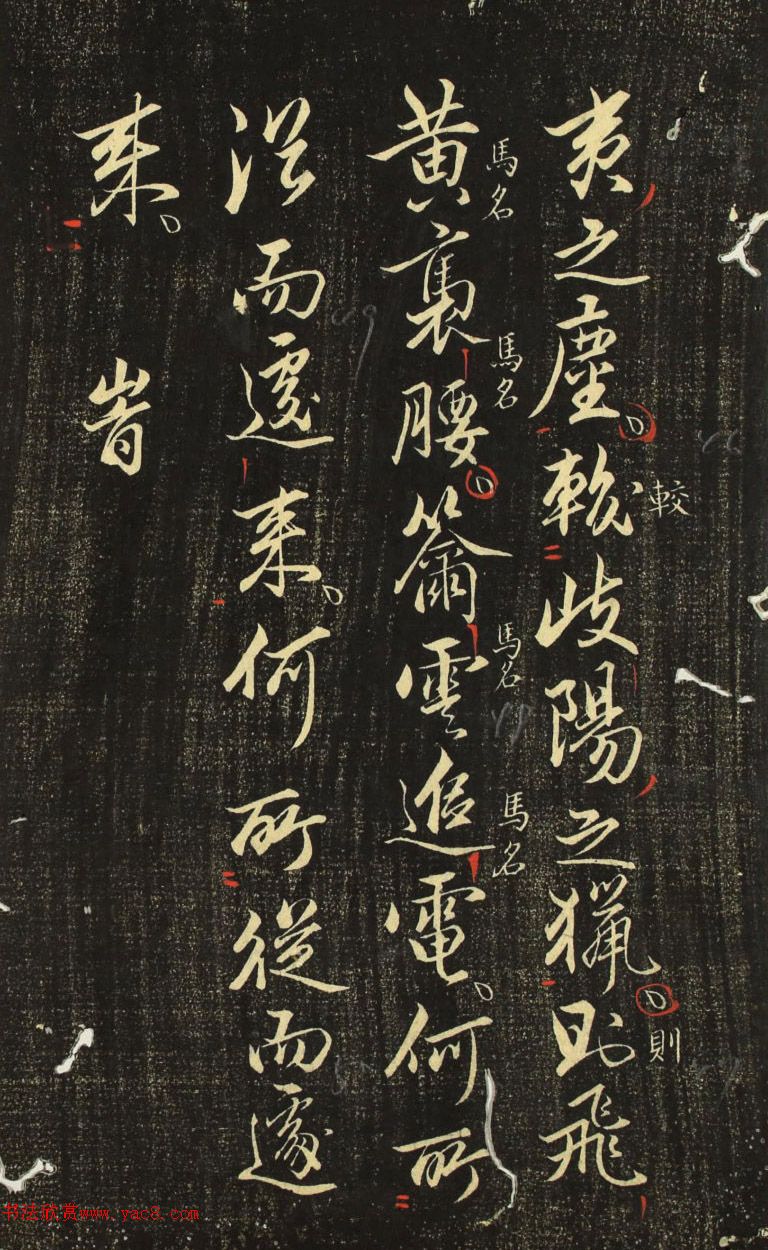 夷之塵較岐陽之獵則飛
較
則
黄褭腰籋雲追電何所
馬名
馬名
馬名
馬名
從而遽来何所從而遽
来 峕
书法欣赏www.yac8.com